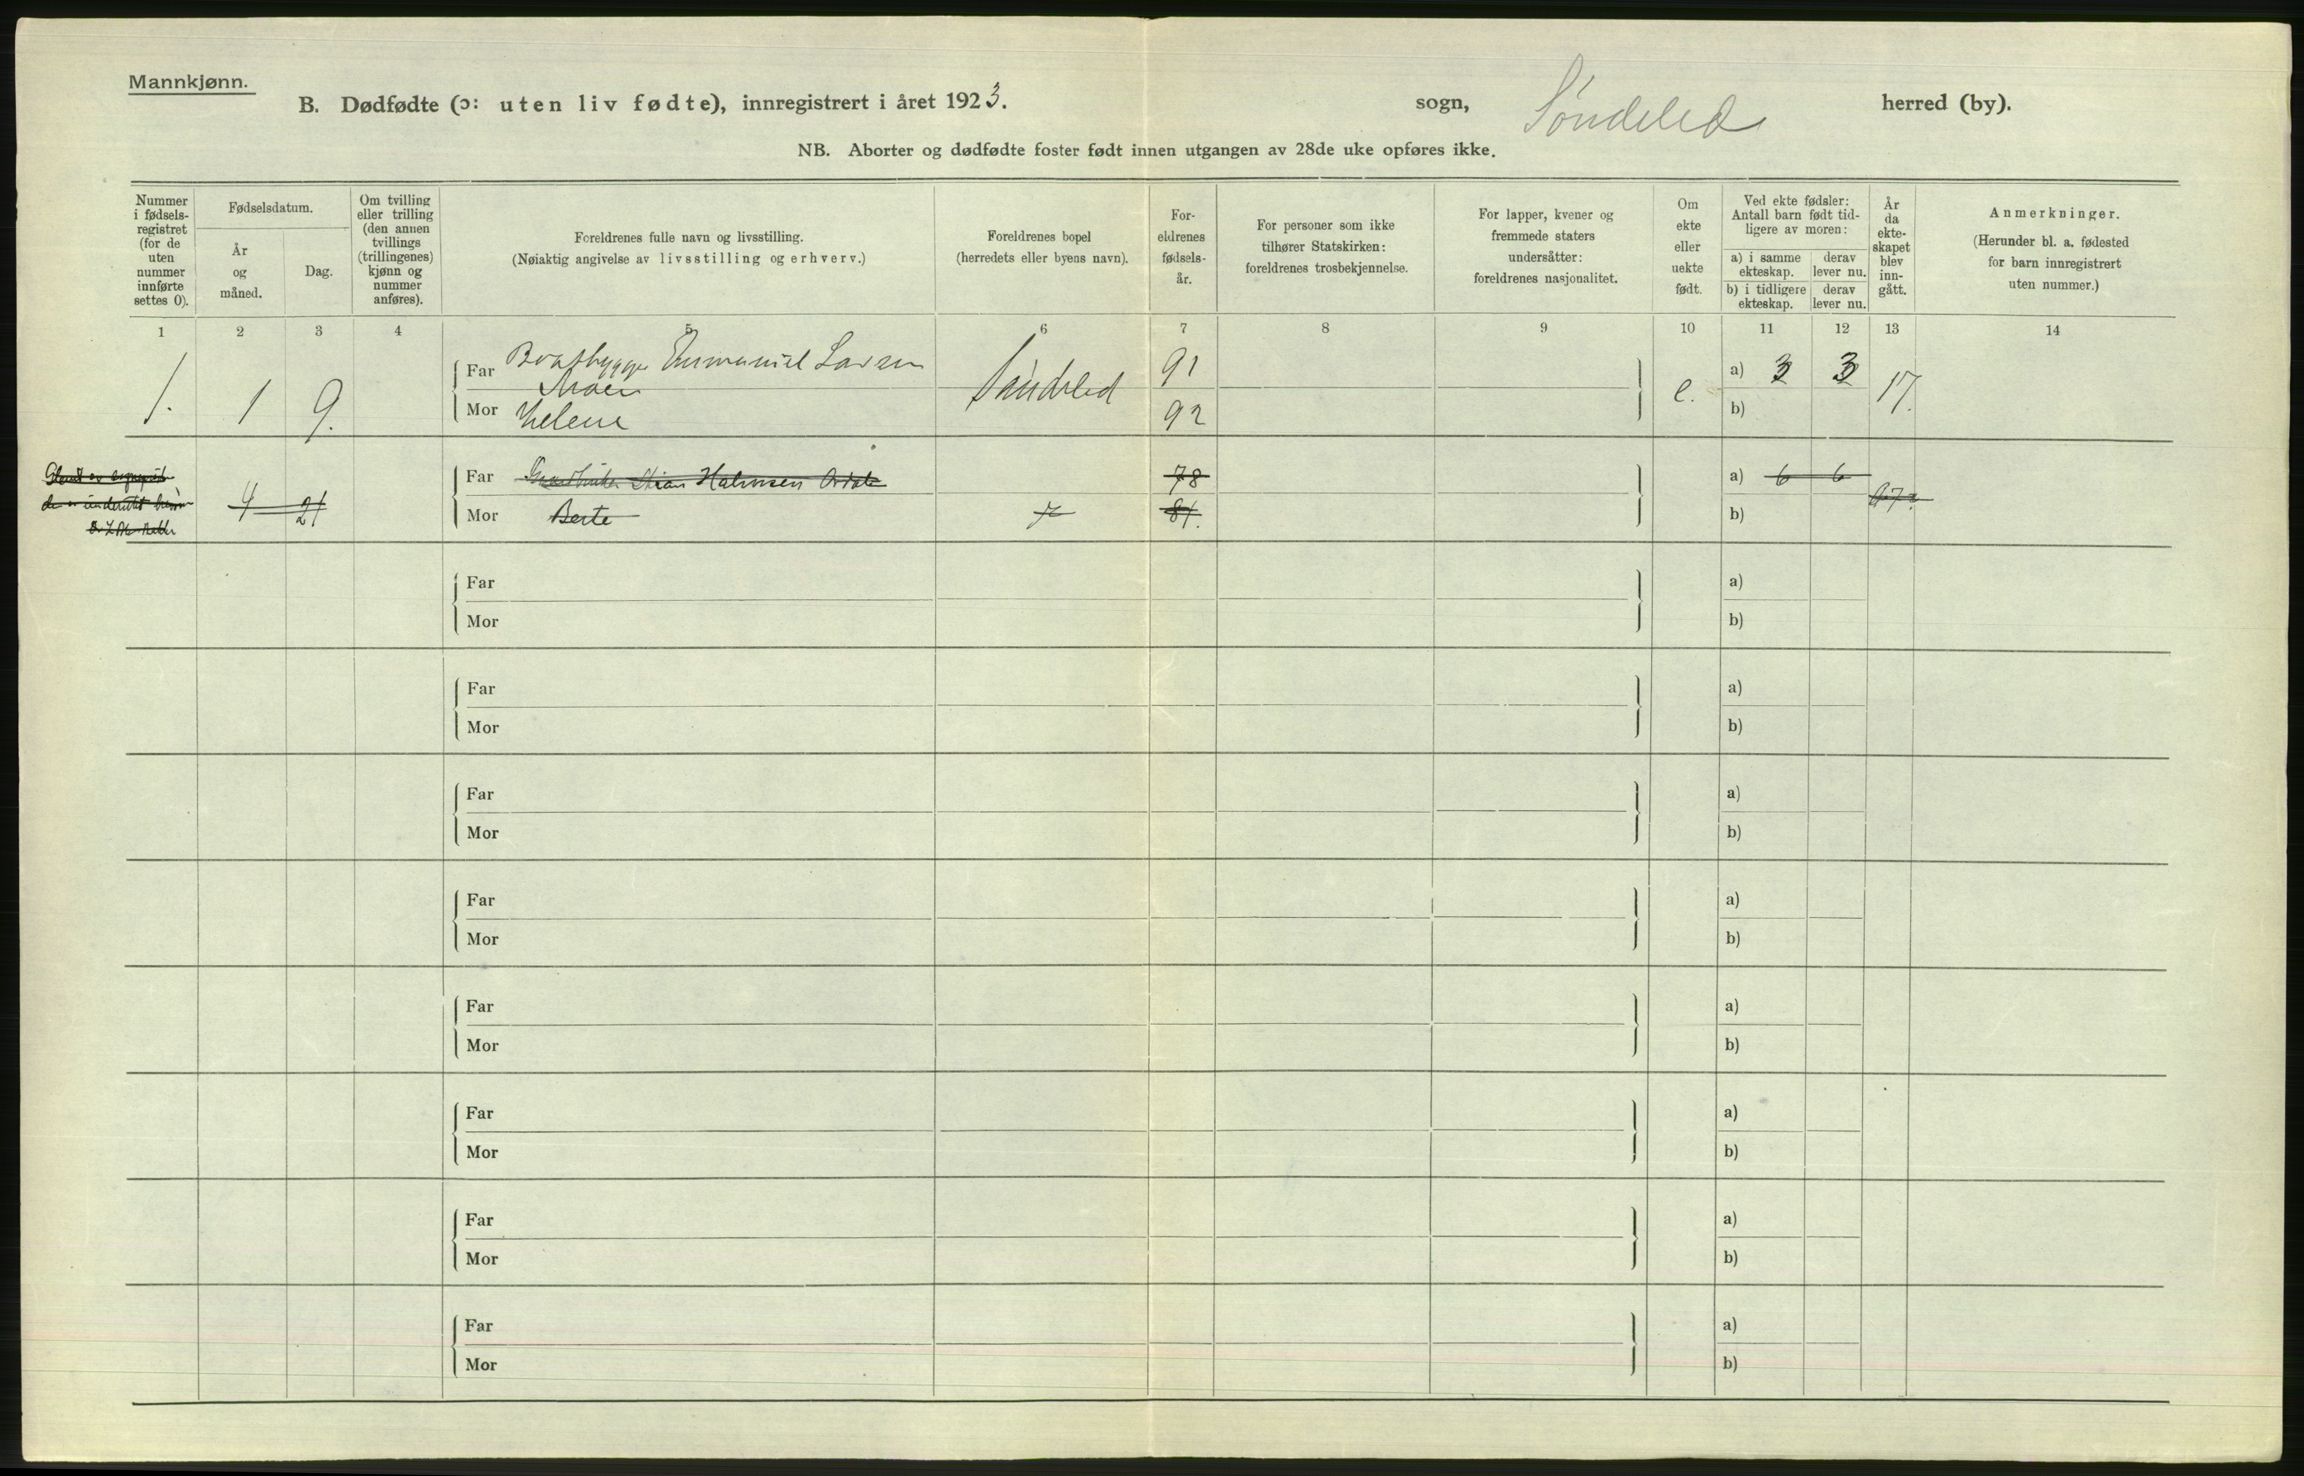 Mannkjønn.
B. Dødfødte (ɔ: uten liv fødte), innregistrert i året 1923. sogn, Søndeled herred (by).
NB. Aborter og dødfødte foster født innen utgangen av 28de uke opføres ikke.
Nummer i fødsels-registret (for de uten nummer innførte settes 0).
Fødselsdatum.
År og måned.
Dag.
Om tvilling eller trilling (den annen tvillings (trillingenes) kjønn og nummer anføres).
Foreldrenes fulle navn og livsstilling.
(Nøiaktig angivelse av livsstilling og erhverv.)
Foreldrenes bopel
(herredets eller byens navn).
For-eldrenes fødsels-år.
For personer som ikke tilhører Statskirken: foreldrenes trosbekjennelse.
For lapper, kvener og fremmede staters undersåtter: foreldrenes nasjonalitet.
Om ekte eller uekte født.
Ved ekte fødsler: Antall barn født tid-ligere av moren:
a) i samme ekteskap.
derav lever nu.
b) i tidligere ekteskap.
derav lever nu.
År da ekte-skapet blev inn-gått.
Anmerkninger.
(Herunder bl. a. fødested for barn innregistrert uten nummer.)
1 2 3 4 5 6 7 8 9 10 11 12 13 14
1. 1 9. Far Emmanuel Larsen Moen Søndeled 91 e. a) 3 3 17.
Mor Helene 92 b)
4 21 Far Halvorsen 78 a) 6 6
Mor Berte 81. b)
Far a)
Mor b)
Far a)
Mor b)
Far a)
Mor b)
Far a)
Mor b)
Far a)
Mor b)
Far a)
Mor b)
Far a)
Mor b)
Far a)
Mor b)